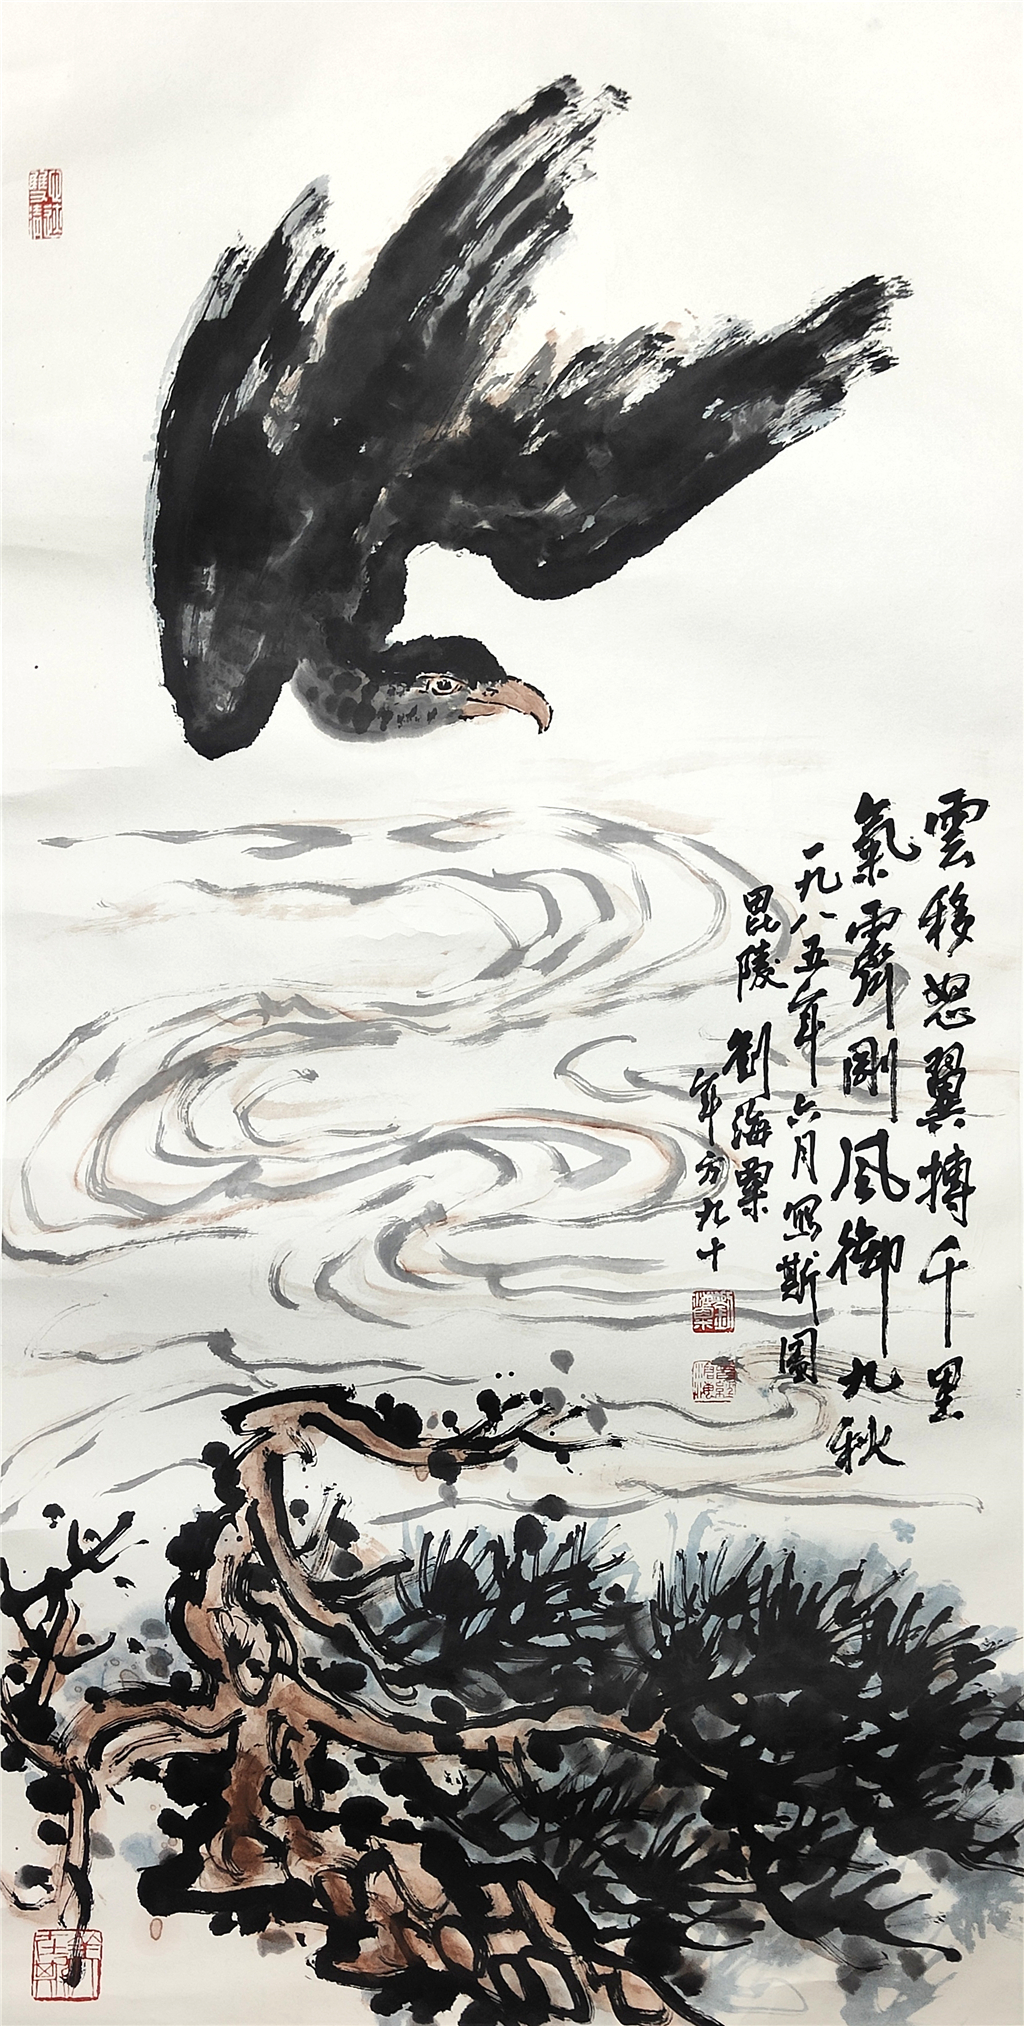 雲移怒翼搏千里
氣霽剛風御九秋
一九八五年六月寫斯圖
毘陵 劉海粟
年方九十